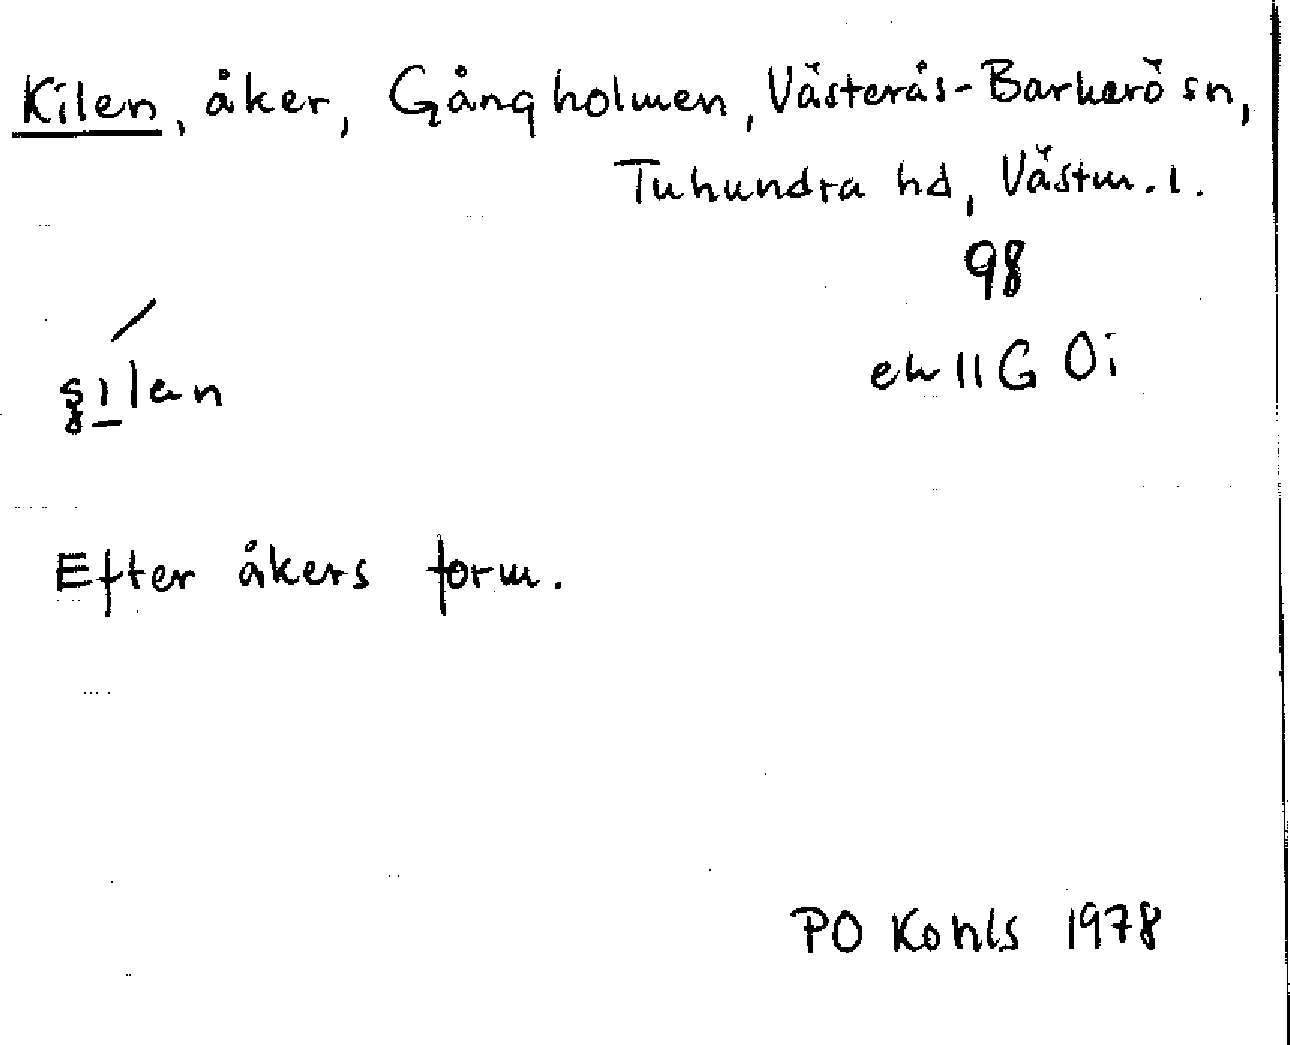 Kilen, åker, Gångholmen, Västerås-Barkarö sn,
Tuhundra hd, Västm. l.
98
ek 11 G 0i
Efter åkers form.
PO Kohls 1978